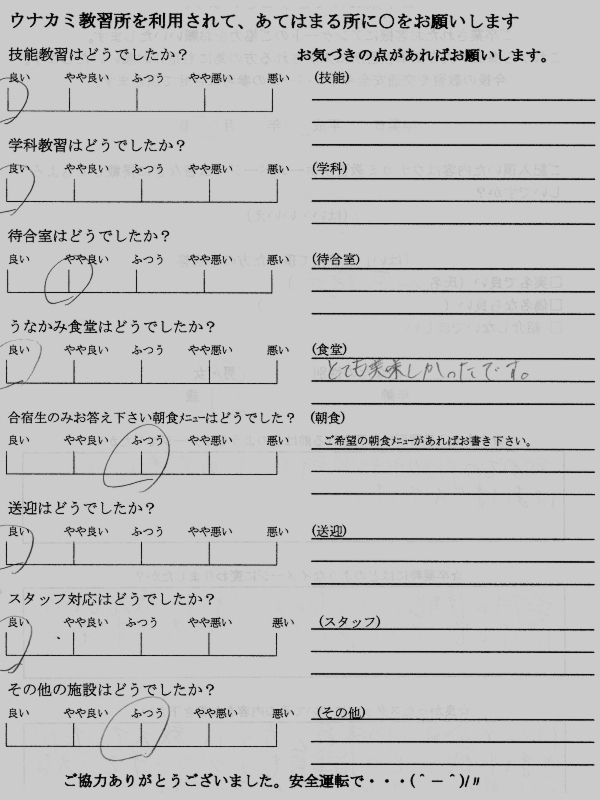 ウナカミ教習所を利用されて、あてはまる所に〇をお願いします
技能教習はどうでしたか？
お気づきの点があればお願いします。
良い やや良い ふつう やや悪い 悪い
(技能)
学科教習はどうでしたか？
良い やや良い ふつう やや悪い 悪い
(学科)
待合室はどうでしたか？
良い やや良い ふつう やや悪い 悪い
(待合室)
うなかみ食堂はどうでしたか？
良い やや良い ふつう やや悪い 悪い
(食堂)
とても美味しかったです。
合宿生のみお答え下さい朝食ﾒﾆｭｰはどうでしたか？
(朝食)
良い やや良い ふつう やや悪い 悪い
ご希望の朝食ﾒﾆｭｰがあればお書き下さい。
送迎はどうでしたか？
良い やや良い ふつう やや悪い 悪い
(送迎)
スタッフ対応はどうでしたか？
良い やや良い ふつう やや悪い 悪い
(スタッフ)
その他の施設はどうでしたか？
良い やや良い ふつう やや悪い 悪い
(その他)
ご協力ありがとうございました。安全運転で・・・(＾－＾)/〃